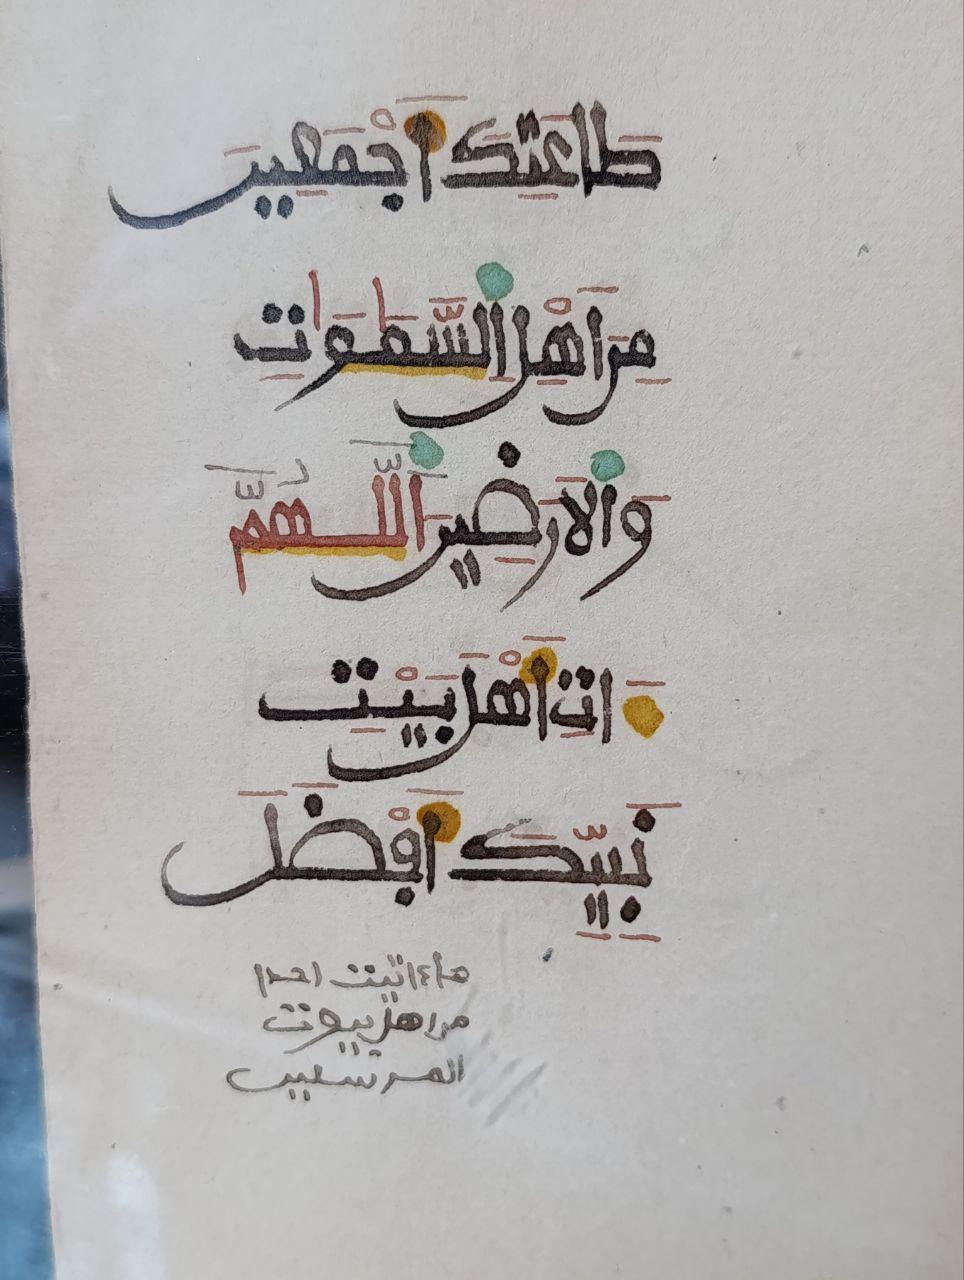 طَاعَتِكَ أَجْمَعِينَ
مِنَ اهْلِ السَّمَٰوَٰتِ
وَالَارَضِينَ اللَّهُمَّ
ءاتِ أَهْلَ بَيْتِ
نَبِيِّكَ أَفْضَلَ
ما ءاتيت احدا
من اهل بيوت
المرسلين